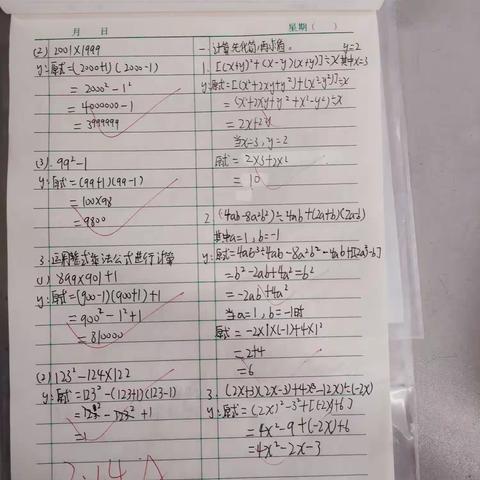 月 日
星期（ ）
(2) 2001×1999
y:原式=(2000+1)(2000-1)
=2000²-1²
=4000000-1
=3999999
(3). 99²-1
y:原式=(99+1)(99-1)
=100×98
=9800
3.运用整式乘法公式进行计算
(1) 899×901+1
y:原式=(900-1)(900+1)+1
=900²-1²+1
=810000
(2) 123²-124×122
y:原式=123²-(123+1)(123-1)
=123²-123²+1
=1
一.计算先化简,再求值。 y=2
1. [(x+y)²+(x-y)(x+y)]÷x其中x=3
y:原式=[(x²+2xy+y²]+(x²-y²)]÷x
=(x²+2xy+y²+x²-y²)÷x
=2x+2y
当x=3,y=2
原式=2×3+2×2
=10
2. (4ab³-8a²b²)÷4ab+(2a+b)(2a-b)
其中a=1,b=-1
y:原式=4ab³÷4ab-8a²b²÷4ab+[(2a)²-b²]
=b²-2ab+4a²-b²
=-2ab+4a²
当a=1,b=-1时
原式=-2×1×(-1)+4×1²
=2+4
=6
3. (2x+3)(2x-3)+(4x²-12x)÷(-2x)
y:原式=(2x)²-3²+[(-2x)+6]
=4x²-9+(-2x)+6
=4x²-2x-3